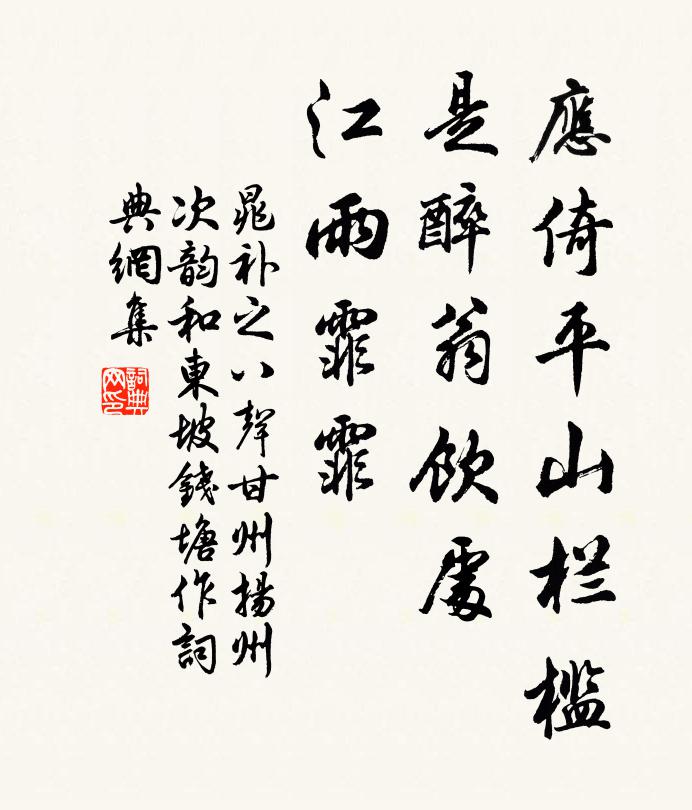 應倚平山栏檻
是醉翁飲處
江雨霏霏
晁补之八聲甘州揚州
次韵和東坡錢塘作詞
典網集
詞典网印